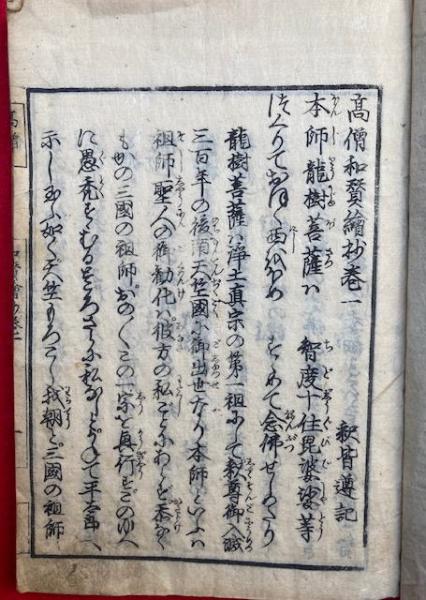 高僧和賛繪抄巻一 釈皆遵記
本師龍樹菩薩ハ 智度十住毘婆娑等
つくりておほく西をほめ すゝめて念佛せしめたり
龍樹菩薩ハ浄土真宗の第一祖にして釈尊御入滅
三百年の後南天竺國に御出世なり本師といふハ
祖師聖人の御勧化ハ彼方の私ことにあらず忝なく
もかの三國の祖師おの〳〵この一宗を興行すこのゆへ
に愚禿すゝむるところさらに私なしと平太郎へ
示し玉ふ如く天竺もろこし我朝と三國の祖師
高僧